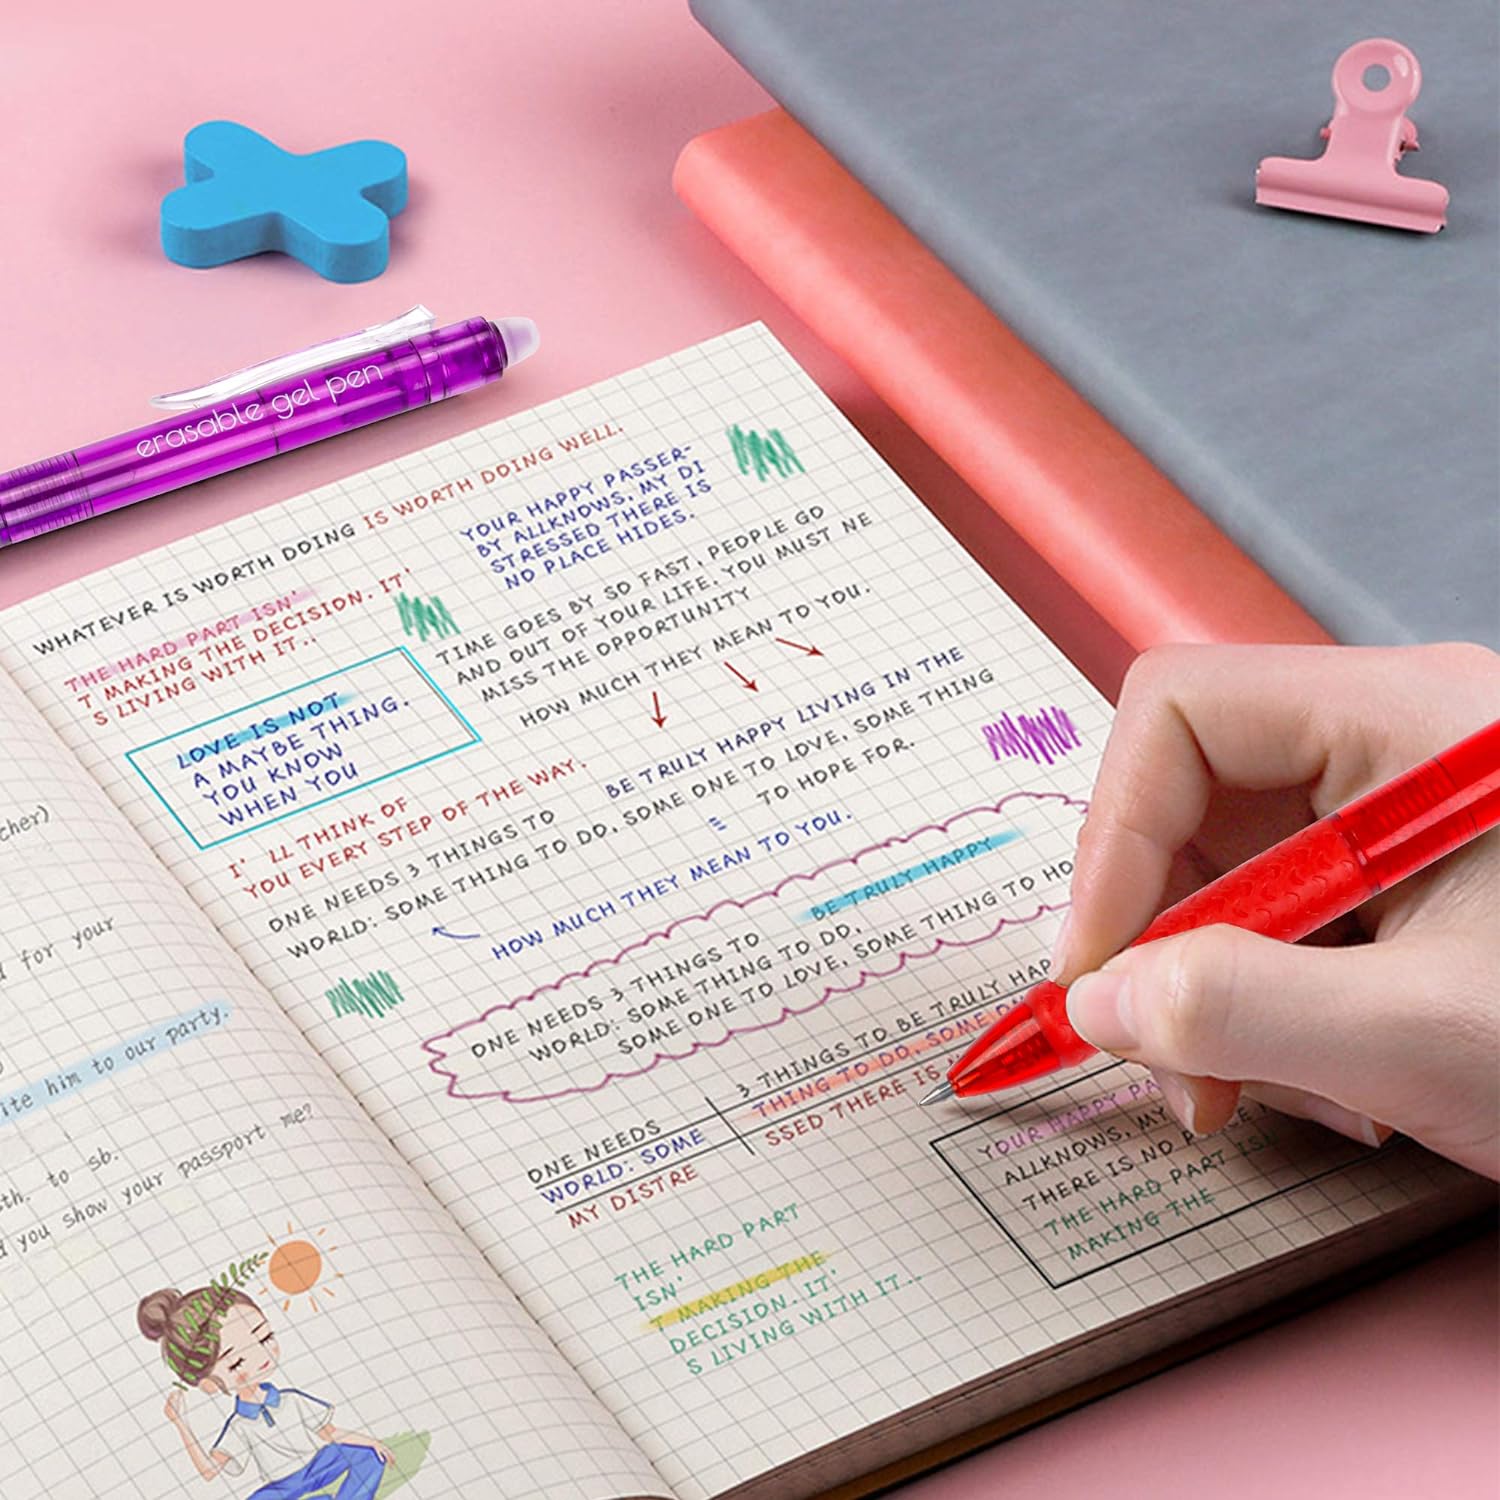 erasable gel pen
WHATEVER IS WORTH DOING IS WORTH DOING WELL.
THE HARD PART ISN'
T MAKING THE DECISION. IT'
S LIVING WITH IT..
YOUR HAPPY PASSER-
BY ALLKNOWS, MY DI
STRESSED THERE IS
NO PLACE HIDES.
TIME GOES BY SO FAST, PEOPLE GO
AND OUT OF YOUR LIFE. YOU MUST NE
MISS THE OPPORTUNITY
HOW MUCH THEY MEAN TO YOU.
LOVE IS NOT
A MAYBE THING.
YOU KNOW
WHEN YOU
I' LL THINK OF
YOU EVERY STEP OF THE WAY.
BE TRULY HAPPY LIVING IN THE
ONE NEEDS 3 THINGS TO
WORLD: SOME THING TO DO, SOME ONE TO LOVE, SOME THING
TO HOPE FOR.
HOW MUCH THEY MEAN TO YOU.
BE TRULY HAPPY
ONE NEEDS 3 THINGS TO
WORLD: SOME THING TO DO,
SOME ONE TO LOVE, SOME THING TO HO
ONE NEEDS
3 THINGS TO BE TRULY HAP
WORLD: SOME
THING TO DO, SOME ON
MY DISTRE
SSED THERE IS
YOUR HAPPY PA
ALLKNOWS, MY
THERE IS NO PLACE
THE HARD PART ISN
MAKING THE
THE HARD PART
ISN'
T MAKING THE
DECISION. IT'
S LIVING WITH IT..
cher)
for your
ite him to our party.
sth. to sb.
d you show your passport me?